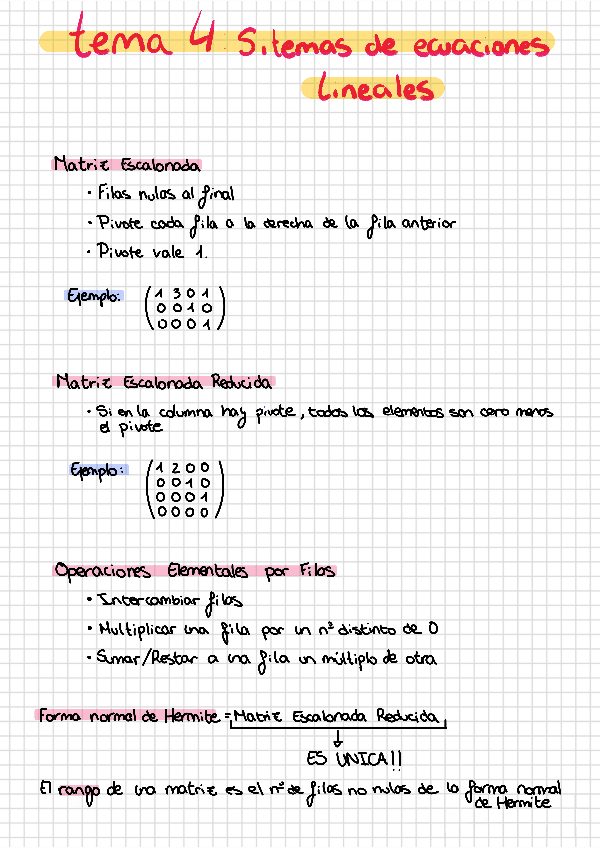 tema 4: Sitemas de ecuaciones
Lineales
Matriz Escalonada
· Filas nulas al final
· Pivote cada fila a la derecha de la fila anterior
· Pivote vale 1.
Ejemplo: (1 3 0 1
0 0 1 0
0 0 0 1)
Matriz Escalonada Reducida
· Si en la columna hay pivote, todos los elementos son cero menos
el pivote
Ejemplo: (1 2 0 0
0 0 1 0
0 0 0 1
0 0 0 0)
Operaciones Elementales por Filas
· Intercambiar filas
· Multiplicar una fila por un nº distinto de 0
· Sumar/Restar a una fila un múltiplo de otra
Forma normal de Hermite = Matriz Escalonada Reducida
ES UNICA!!
El rango de una matriz es el nº de filas no nulas de la forma normal
de Hermite